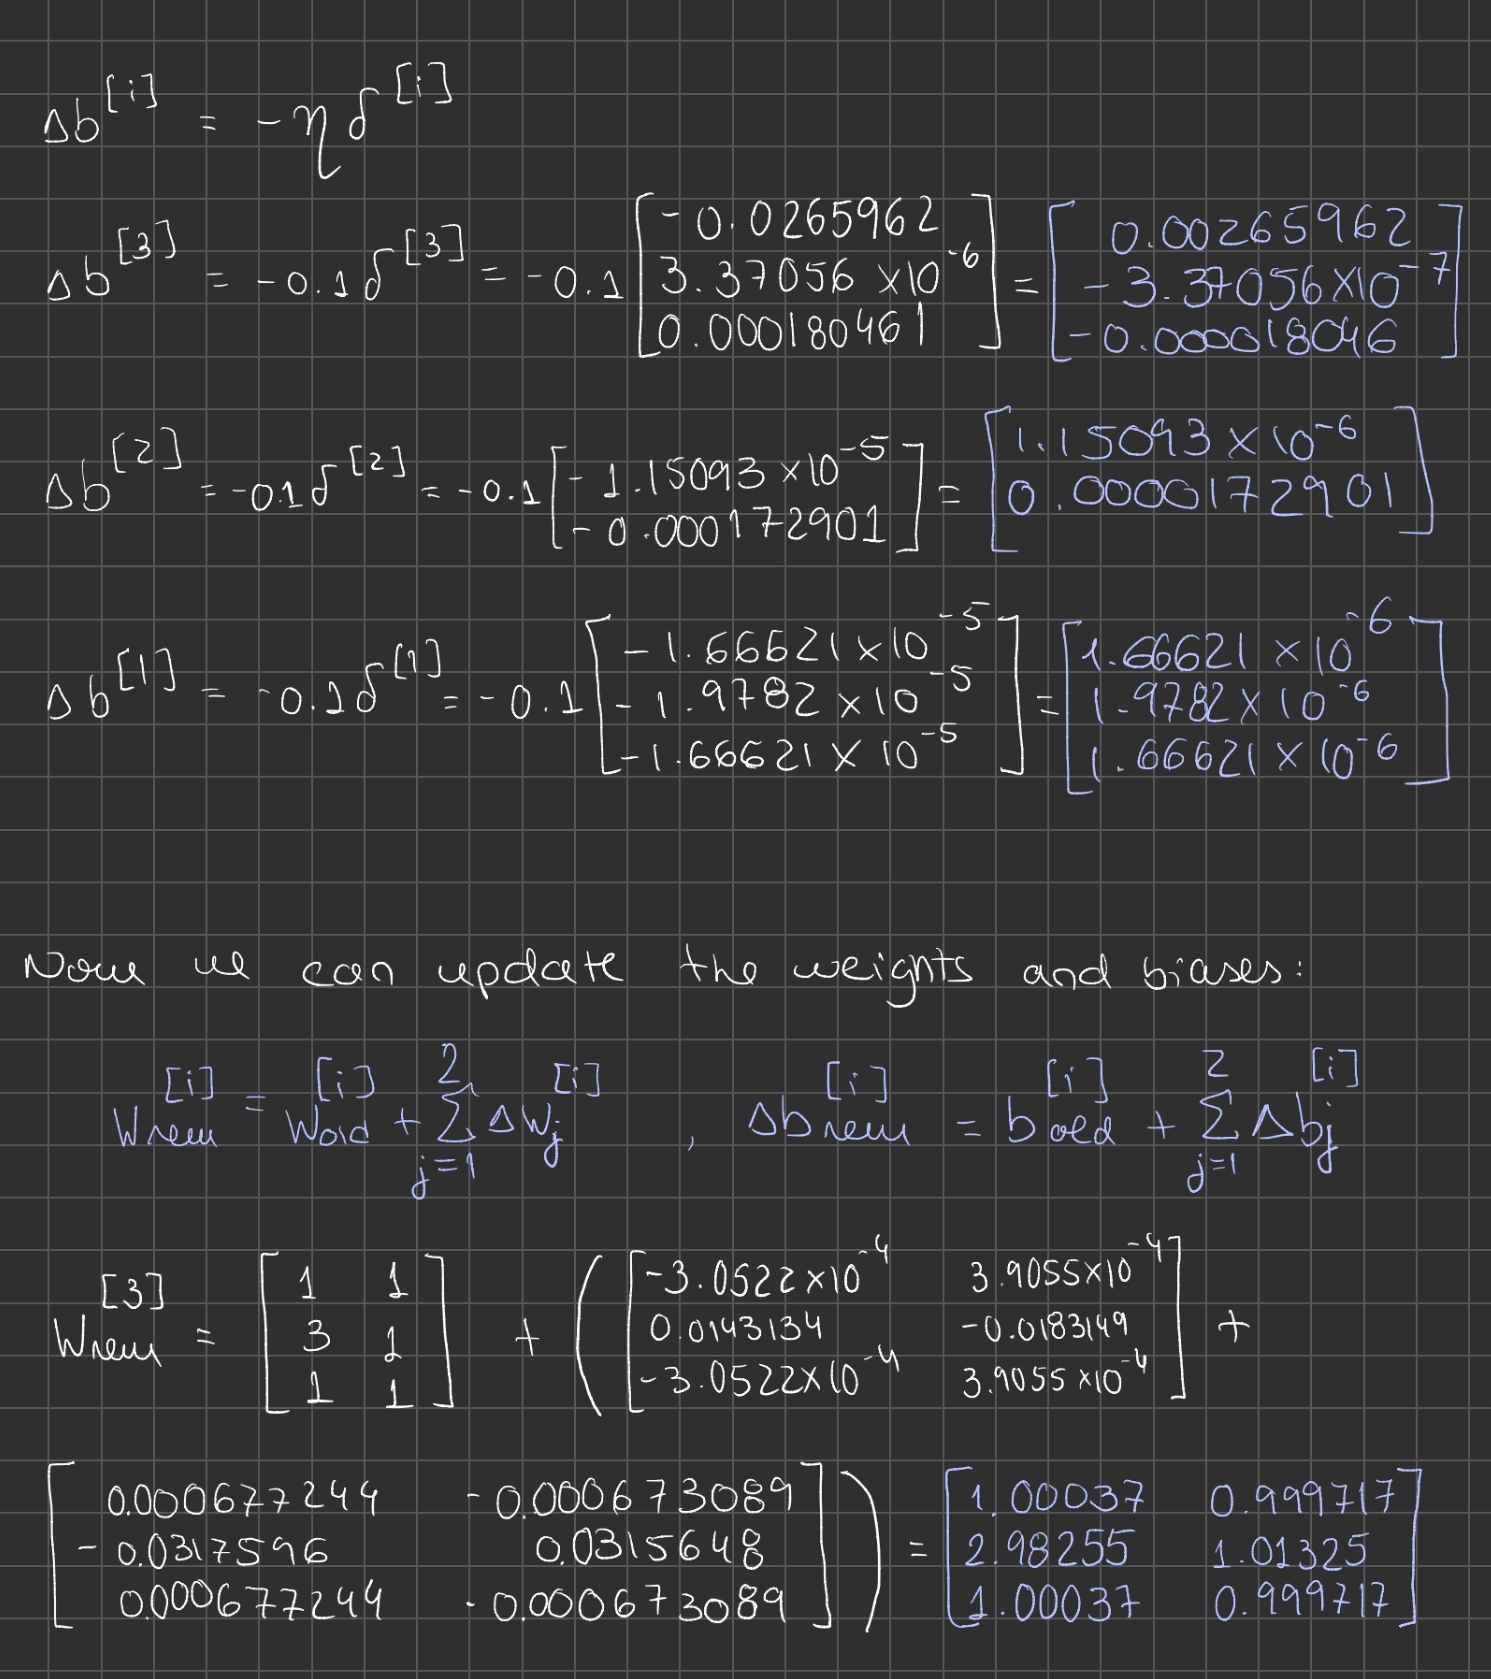 Δb^[i] = -η δ^[i]
Δb^[3] = -0.1 δ^[3] = -0.1 [ -0.0265962 ; 3.37056 × 10^-6 ; 0.000180461 ] = [ 0.00265962 ; -3.37056 × 10^-7 ; -0.000018046 ]
Δb^[2] = -0.1 δ^[2] = -0.1 [ -1.15093 × 10^-5 ; -0.000172901 ] = [ 1.15093 × 10^-6 ; 0.0000172901 ]
Δb^[1] = -0.1 δ^[1] = -0.1 [ -1.66621 × 10^-5 ; -1.9782 × 10^-5 ; -1.66621 × 10^-5 ] = [ 1.66621 × 10^-6 ; 1.9782 × 10^-6 ; 1.66621 × 10^-6 ]
Now we can update the weights and biases:
W_new^[i] = W_old^[i] + Σ_{j=1}^{2} ΔW_j^[i] , Δb_new^[i] = b_old^[i] + Σ_{j=1}^{2} Δb_j^[i]
W_new^[3] = [ 1 1 ; 3 1 ; 1 1 ] + ( [ -3.0522 × 10^-4 3.9055 × 10^-4 ; 0.0143134 -0.0183149 ; -3.0522 × 10^-4 3.9055 × 10^-4 ] +
[ 0.000677244 -0.000673089 ; -0.0317596 0.0315648 ; 0.000677244 -0.000673089 ] ) = [ 1.00037 0.999717 ; 2.98255 1.01325 ; 1.00037 0.999717 ]